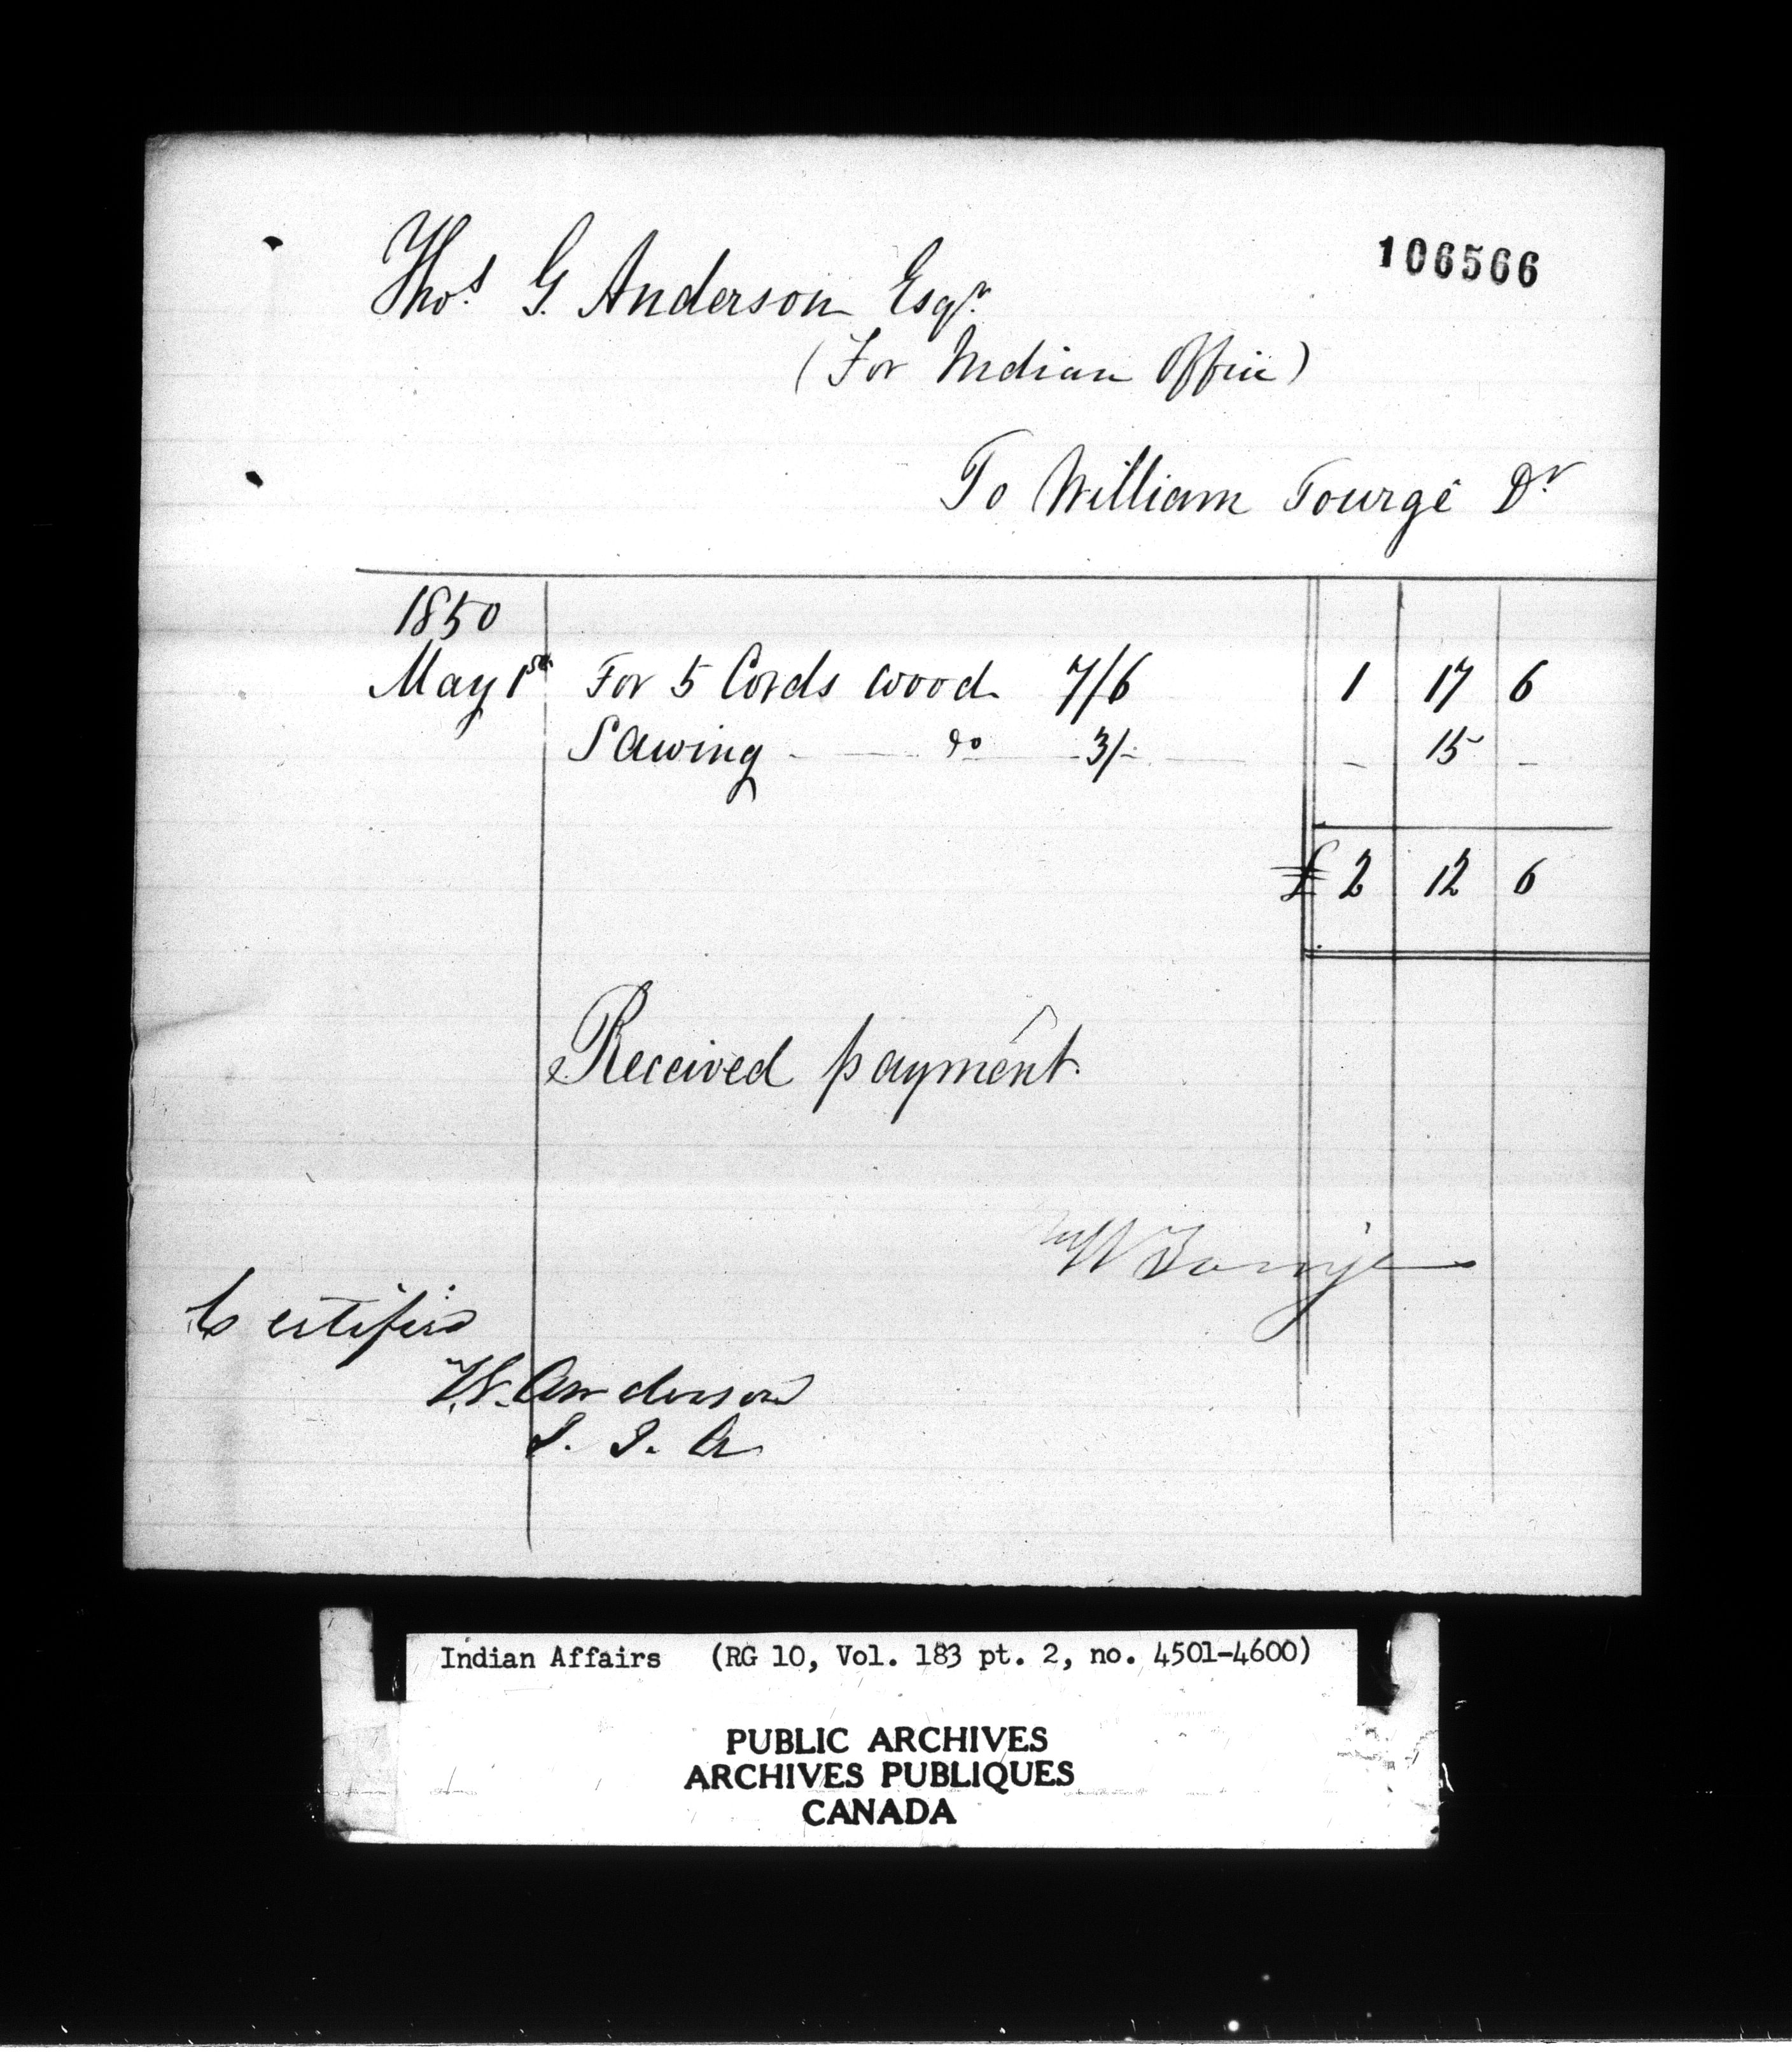 106566
Thos. G. Anderson Esqr.
(For Indian Office)
To William Tourgé Dr
1850
May 1st For 5 Cords wood 7/6 1 17 6
Sawing - do - 3/- - 15 -
£ 2 12 6
Received payment
Wm Tourge
Certified
T.G. Anderson
S. I. A
Indian Affairs (RG 10, Vol. 183 pt. 2, no. 4501-4600)
PUBLIC ARCHIVES
ARCHIVES PUBLIQUES
CANADA